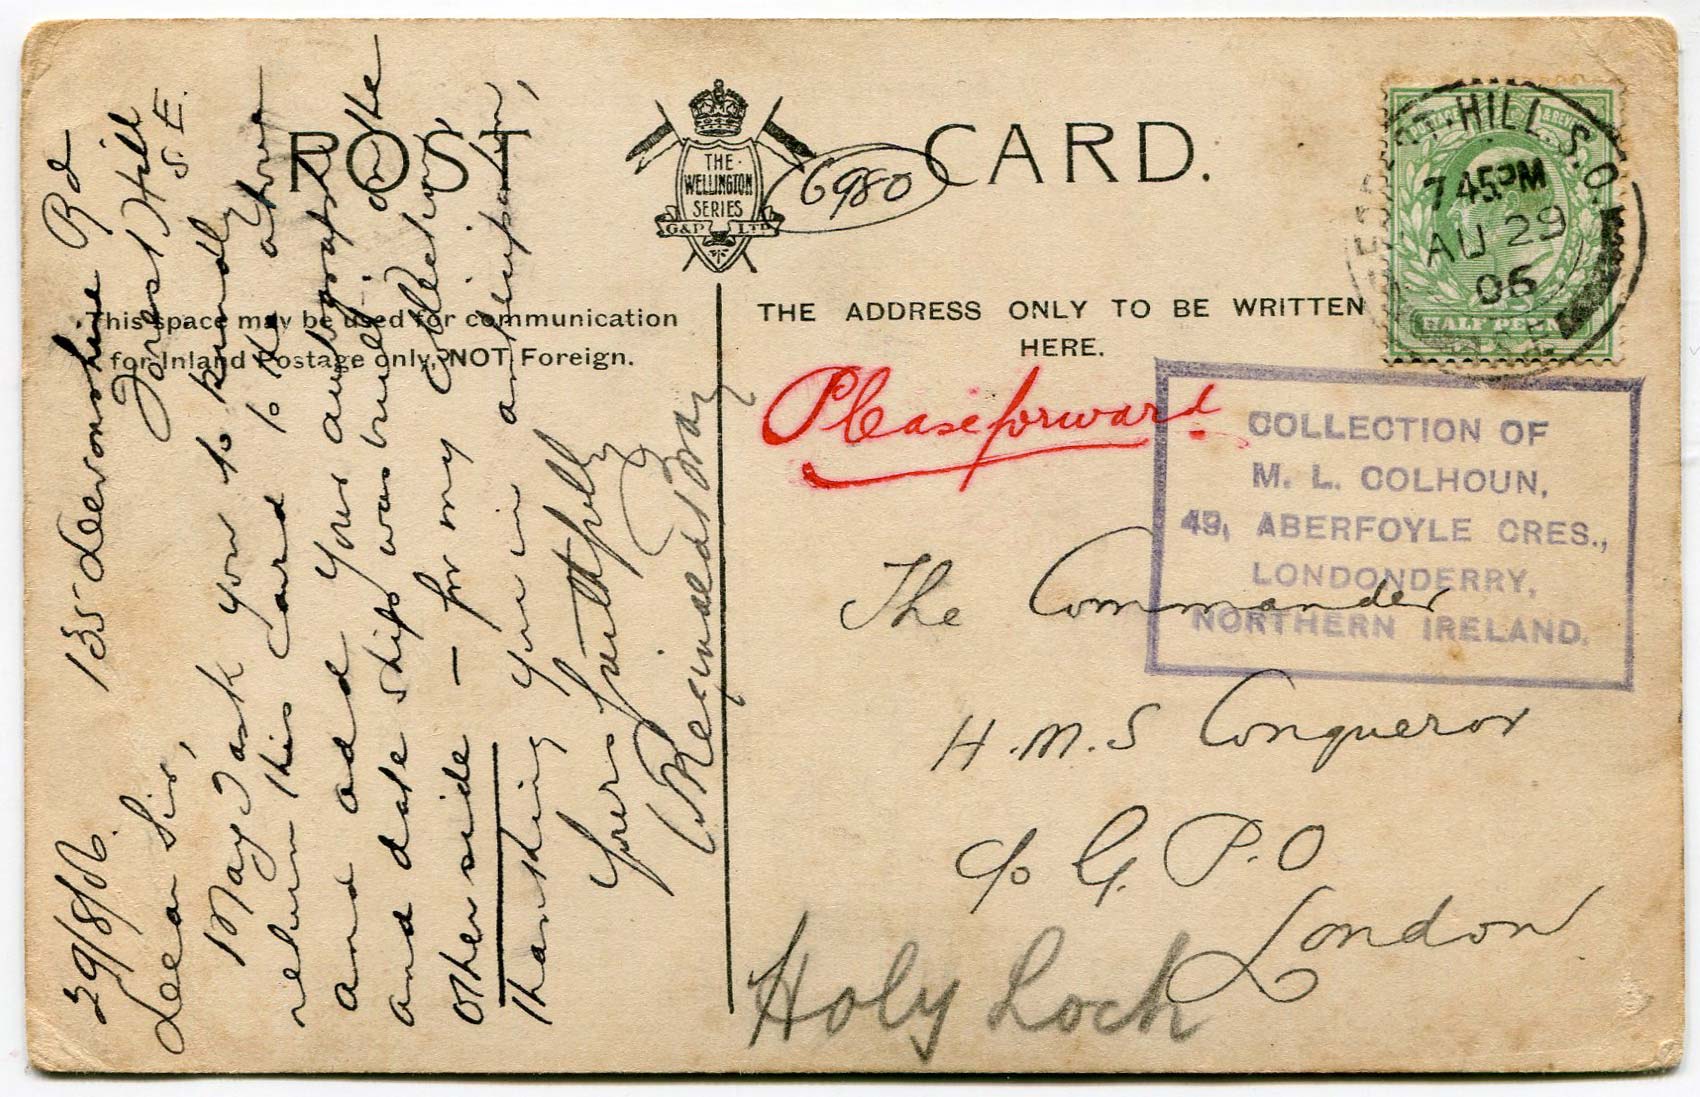 POST CARD.
THE
WELLINGTON
SERIES
G&P LTD
6980
This space may be used for communication
for Inland Postage only, NOT Foreign.
THE ADDRESS ONLY TO BE WRITTEN
HERE.
HILL.S.O.
745PM
AU 29
06
HALF PENNY
COLLECTION OF
M. L. COLHOUN,
49, ABERFOYLE CRES.,
LONDONDERRY,
NORTHERN IRELAND.
Please forward
The Commander
H.M.S Conqueror
c/o G.P.O
London
Holy Loch
135 Devonshire Rd
Forest Hill
S.E.
29/8/06.
Dear Sir,
May I ask you to kindly
return this card to the above
and add your autograph
and date ship was built, on the
other side — for my collection,
thanking you in anticipation,
Yours faithfully
Reginald May